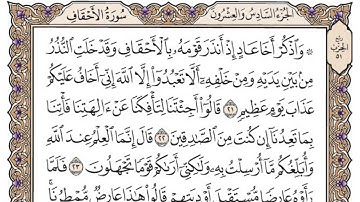 الجزء السادس والعشرون
سورة الأحقاف
۞ وَٱذْكُرْ أَخَا عَادٍ إِذْ أَنذَرَ قَوْمَهُۥ بِٱلْأَحْقَافِ وَقَدْ خَلَتِ ٱلنُّذُرُ
مِنۢ بَيْنِ يَدَيْهِ وَمِنْ خَلْفِهِۦٓ أَلَّا تَعْبُدُوٓا۟ إِلَّا ٱللَّهَ إِنِّىٓ أَخَافُ عَلَيْكُمْ
عَذَابَ يَوْمٍ عَظِيمٍ ٢١ قَالُوٓا۟ أَجِئْتَنَا لِتَأْفِكَنَا عَنْ ءَالِهَتِنَا فَأْتِنَا
بِمَا تَعِدُنَآ إِن كُنتَ مِنَ ٱلصَّـٰدِقِينَ ٢٢ قَالَ إِنَّمَا ٱلْعِلْمُ عِندَ ٱللَّهِ
وَأُبَلِّغُكُم مَّآ أُرْسِلْتُ بِهِۦ وَلَـٰكِنِّىٓ أَرَىٰكُمْ قَوْمًا تَجْهَلُونَ ٢٣ فَلَمَّا
رَأَوْهُ عَارِضًا مُّسْتَقْبِلَ أَوْدِيَتِهِمْ قَالُوا۟ هَـٰذَا عَارِضٌ مُّمْطِرُنَا ۚ